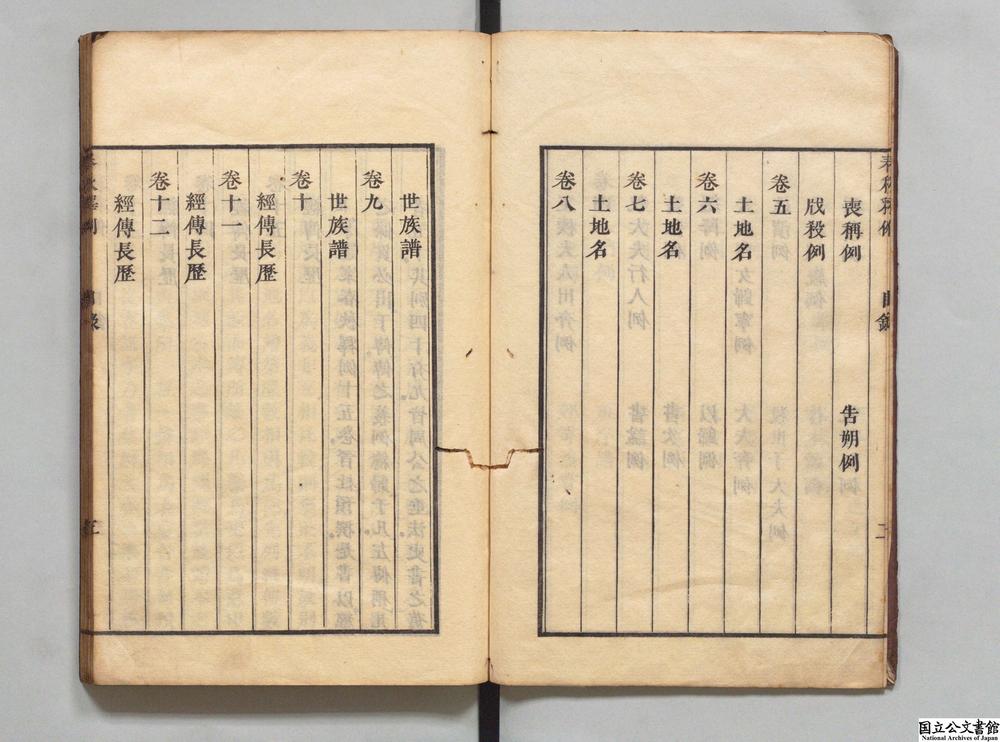 喪稱例 告朔例
戕殺例
卷五
土地名
卷六
土地名
卷七
土地名
卷八
世族譜
卷九
世族譜
卷十
經傳長歷
卷十一
經傳長歷
卷十二
經傳長歷
国立公文書館
National Archives of Japan